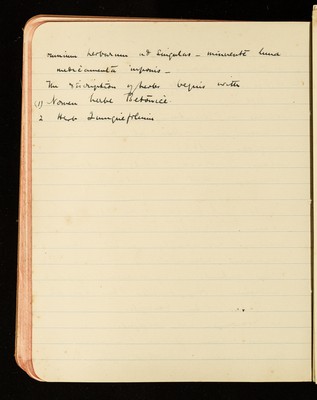 omnium herbarum ad singulas – minuente luna
medicamenta imponis –
The description of herbs begins with
(1) Nomen herbe Betonice
2 Herb Quinquefolium